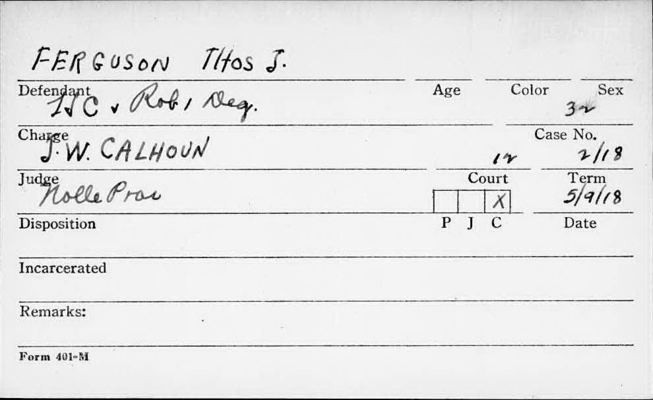 FERGUSON THOS J.
Defendant Age Color Sex
& Rob, Deg. 32
Charge Case No.
J. W. CALHOUN 12 2/18
Judge Court Term
Nolle Pros X 5/9/18
Disposition P J C Date
Incarcerated
Remarks:
Form 401-M